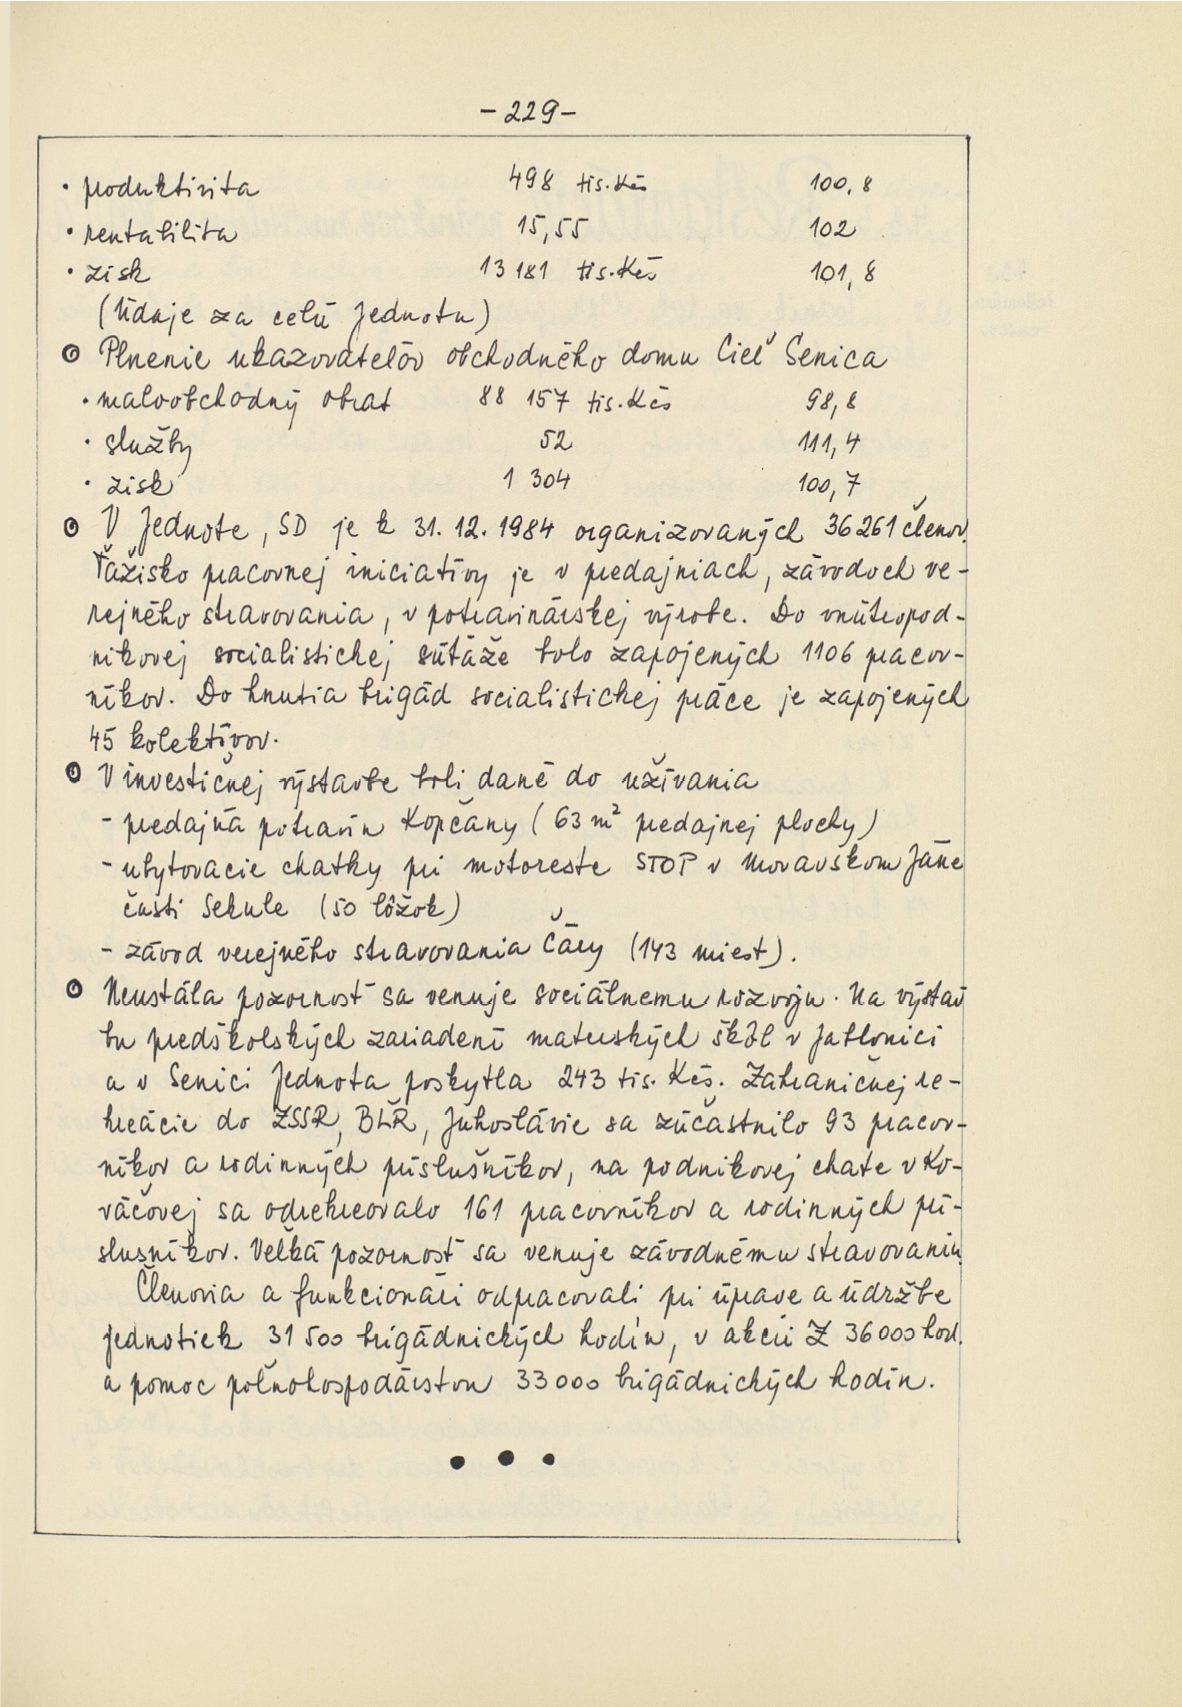 - 229 -
• produktivita 498 tis. Kčs 100,8
• rentabilita 15,55 102
• zisk 13 181 tis. Kčs 101,8
(Údaje za celú Jednotu)
⊙ Plnenie ukazovateľov obchodného domu Cieľ Senica
• maloobchodný obrat 88 157 tis. Kčs 98,8
• služby 52 111,4
• zisk 1 304 100,7
⊙ V Jednote, SD je k 31. 12. 1984 organizovaných 36 261 členov.
Ťažisko pracovnej iniciatívy je v predajniach, závodoch ve-
rejného stravovania, v potravinárskej výrobe. Do vnútropod-
nikovej socialistickej súťaže bolo zapojených 1106 pracov-
níkov. Do hnutia brigád socialistickej práce je zapojených
45 kolektívov.
⊙ V investičnej výstavbe boli dané do užívania
- predajňa potravín Kopčany (63 m² predajnej plochy)
- ubytovacie chatky pri motoreste STOP v Moravskom Jáne
časti Sekule (50 lôžok)
- závod verejného stravovania Čáry (143 miest).
⊙ Neustála pozornosť sa venuje sociálnemu rozvoju. Na výstav
bu predškolských zariadení materských škôl v Jablonici
a v Senici Jednota poskytla 243 tis. Kčs. Zahraničnej re-
kreácie do ZSSR, BĽR, Juhoslávie sa zúčastnilo 93 pracov-
níkov a rodinných príslušníkov, na podnikovej chate v Ko-
váčovej sa odrekreovalo 161 pracovníkov a rodinných prí-
slušníkov. Veľká pozornosť sa venuje závodnému stravovaniu.
Členovia a funkcionári odpracovali pri úprave a údržbe
jednotiek 31 500 brigádnických hodín, v akcii Z 36 000 hod.
a pomoc poľnohospodárstvu 33 000 brigádnických hodín.
• • •